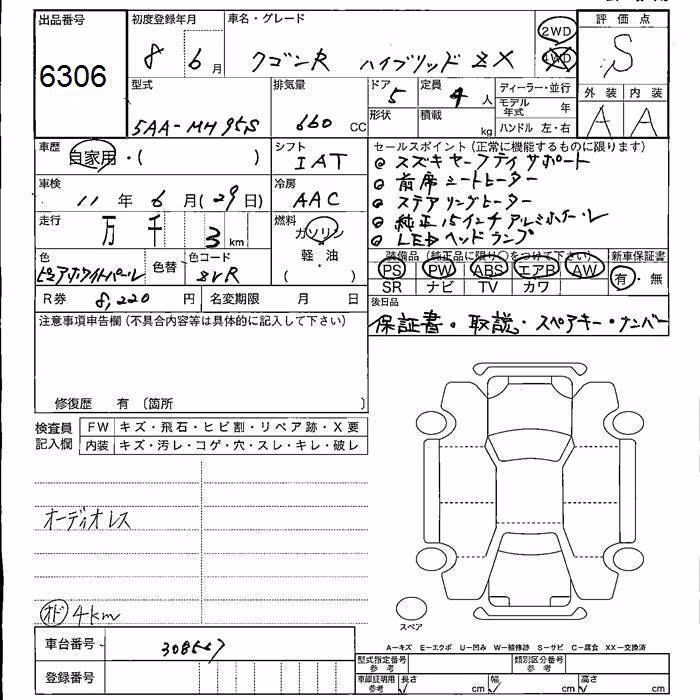 出品番号 初度登録年月 車名・グレード 評価点
6306 8 6月 ワゴンR ハイブリッド ZX 2WD 4WD S
型式 排気量 ドア 定員 ディーラー・並行 外装 内装
5AA-MH95S 660 CC 5 4人 モデル年式 年 A A
形状 積載 kg ハンドル 左・右
車歴 自家用・( ) シフト IAT セールスポイント(正常に機能するものに限ります)
◎ スズキセーフティサポート
車検 11年 6月(29日) 冷房 AAC ◎ 前席シートヒーター
◎ ステアリングヒーター
走行 万 千 3 km 燃料 ガソリン ◎ 純正15インチアルミホイール
軽・油 ( ) ◎ LEDヘッドランプ
色 色替 色コード 装備品(純正品に限り○をつけて下さい) 新車保証書
ピュアホワイトパール ZVR PS PW ABS エアB AW 有・無
SR ナビ TV カワ
R券 8,220 円 名変期限 月 日 後日品
注意事項申告欄(不具合内容等は具体的に記入して下さい) 保証書・取説・スペアキー・ナンバー
修復歴 有 〔箇所 〕
検査員記入欄 FW キズ・飛石・ヒビ割・リペア跡・X要
内装 キズ・汚レ・コゲ・穴・スレ・キレ・破レ
オーディオレス
オド 4km
スペア
車台番号 308567
A−キズ E−エクボ U−凹み W−補修跡 S−サビ C−腐食 XX−交換済
登録番号 型式指定番号 参考 類別区分番号 参考
車庫証明用 参考 長さ cm 幅 cm 高さ cm